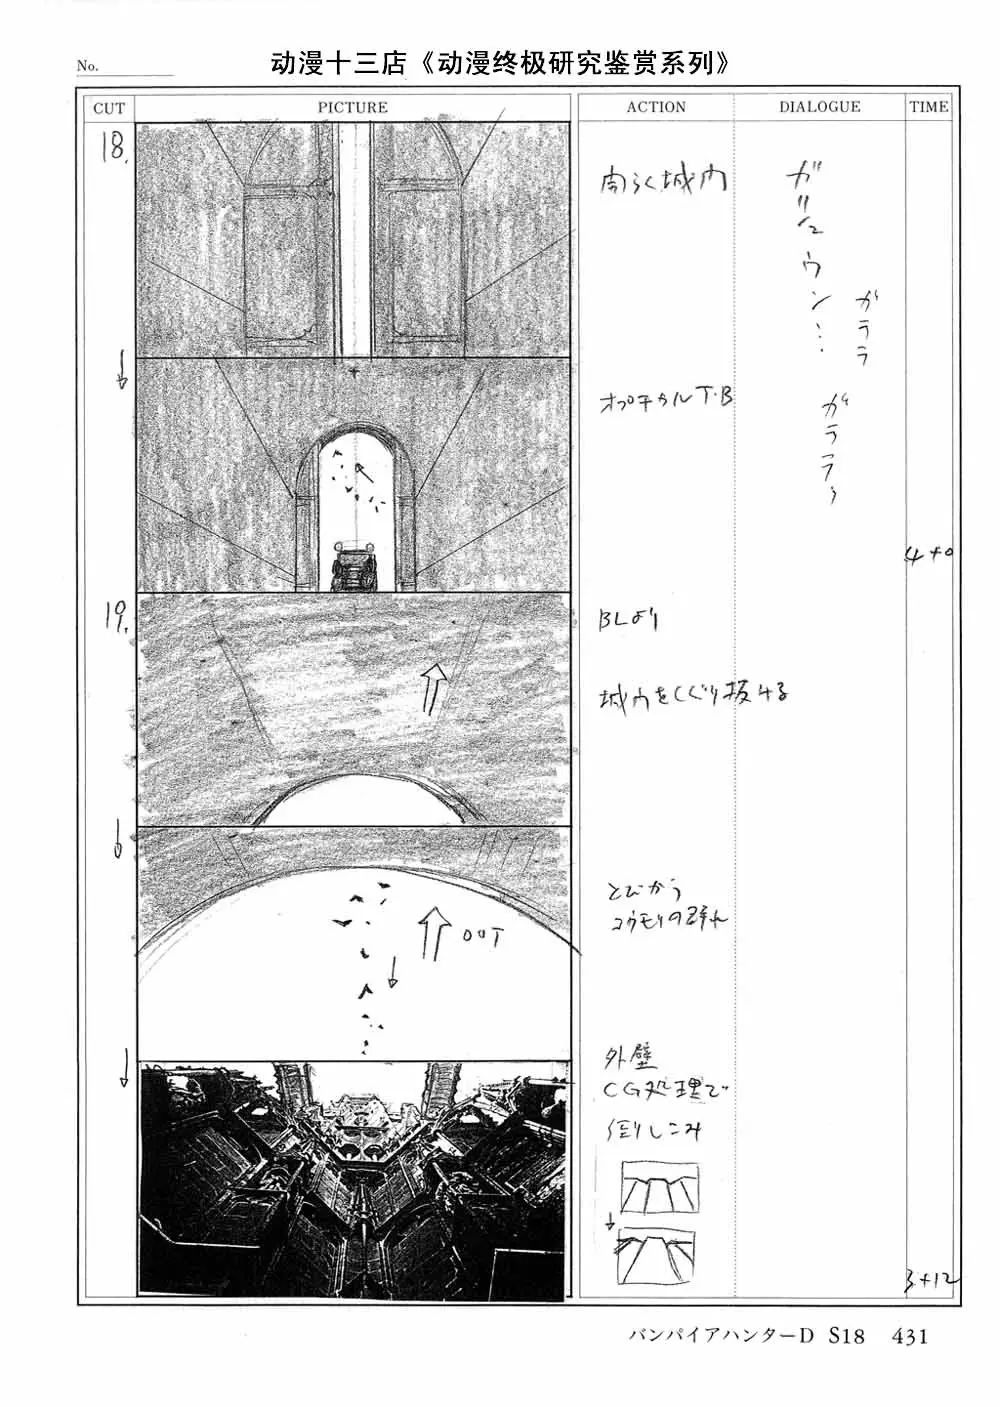 No.
动漫十三店《动漫终极研究鉴赏系列》
CUT
PICTURE
ACTION
DIALOGUE
TIME
18.
開らく城門
ガ
リュウン…
ガララ
オプチカルT.B
ガララ
4+0
19.
BLより
城内をくぐり抜ける
とびかう
コウモリの群れ
OUT
外壁
CG処理で
倒しこみ
3+12
バンパイアハンターD S18 431